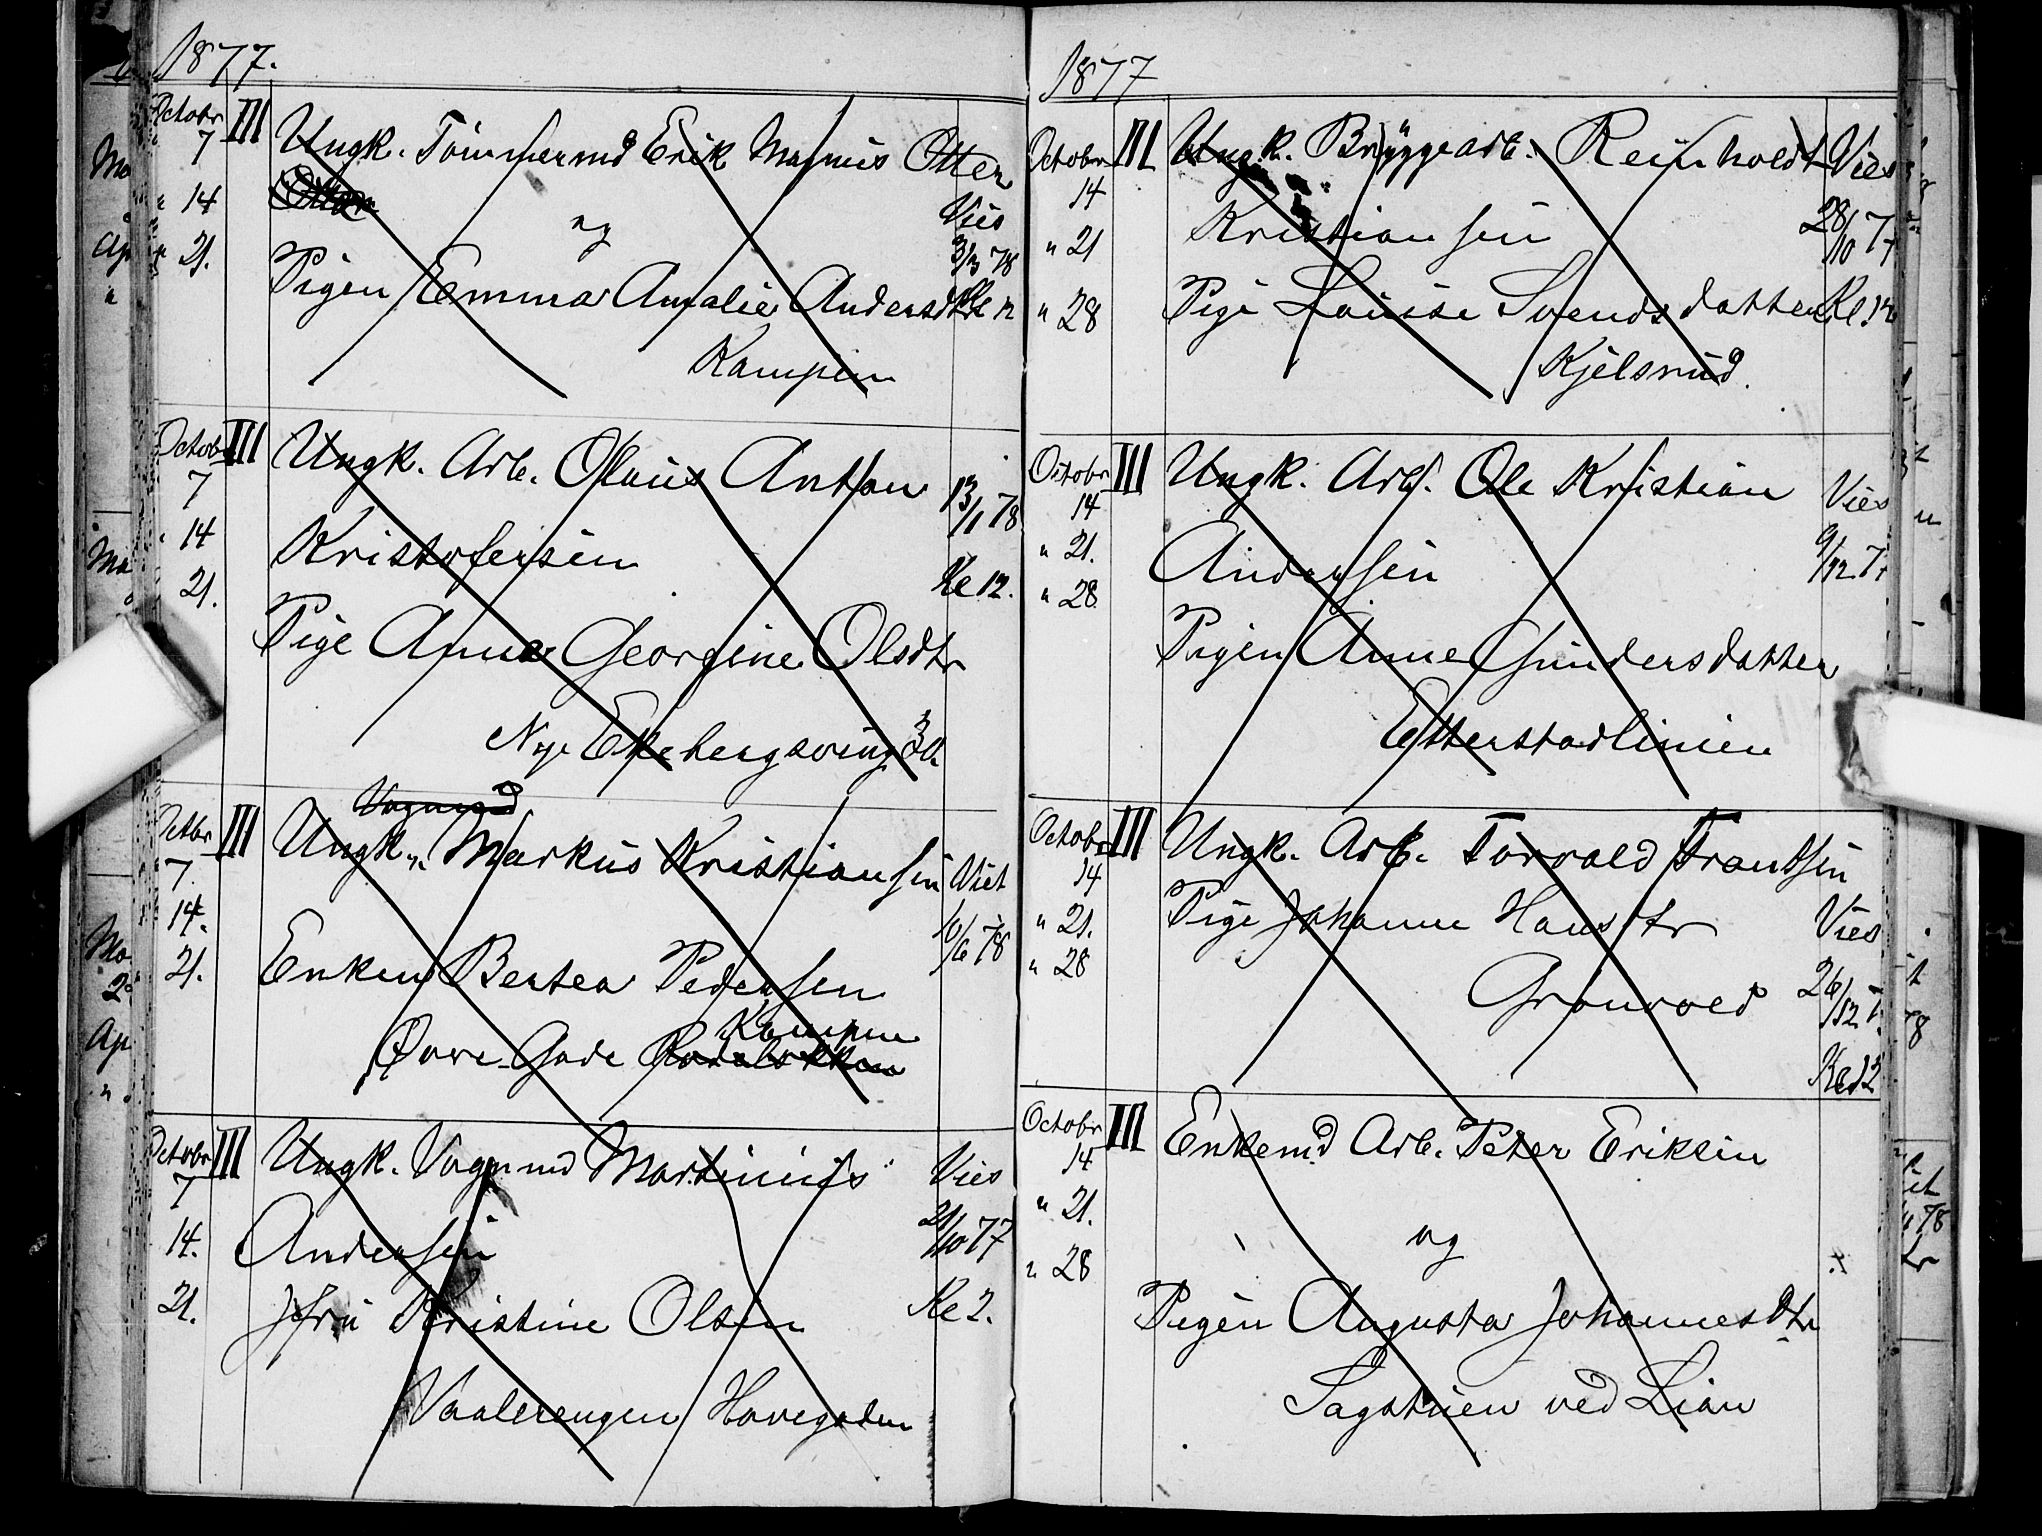 1877.
Octobr III Ungk. Tömmermd Erik Magnus Otter
7
" 14 Otter og Vies
" 21. 3/3 78
Pigen Emma Amalie Andersdtr Kl 12
Kampen
Octobr III Ungk. Arb. Olaus Anton
7 13/1 78
" 14 Kristofersen Kl 12.
21.
Pige Anna Georgine Olsdtr
Nye Ekebergsvei 30.
Vognmd
Octbr III Ungk. Markus Kristiansen Viet
7
14. 10/6 78
21. Enken Bertea Pedersen
Kampen
Øvre Gade Rodeløkken
Octobr III Ungk. Vognmd Martinius Vies
7 21/10 77
14. Andersen
21. Jfru Kristine Olsen Kl 2.
Vaalerengen Havegaden
1877
Octobr III Ungk. Bryggearb. Reinholdt Vies
14 28/10 77
" 21 Kristiansen
" 28 Pige Louise Svendsdatter Kl. 12
Kjelsrud.
Octobr III Ungk. Arb. Ole Kristian Vies
14 9/12 77
" 21. Andersen
" 28
Pigen Anne Gundersdatter
Etterstadlinien
Octobr III Ungk. Arb. Torvald Frantsen
14
" 21. Pige Johanne Hansdtr Vies
" 28 Grønvold 26/12 7
Kl 12
Octobr III Enkemd Arb. Peter Eriksen
14
" 21. og
" 28
Pigen Augusta Johannesdtr
Sagstuen ved Lian